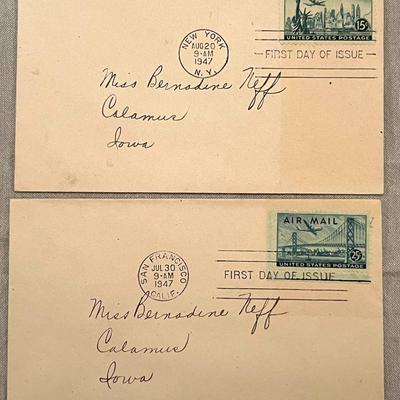 NEW YORK
AUG 20
9-AM
1947
N.Y.
15¢
UNITED STATES POSTAGE
FIRST DAY OF ISSUE
Miss Bernadine Neff
Calamus
Iowa
SAN FRANCISCO
JUL 30
9-AM
1947
CALIF.
AIR MAIL
25¢
UNITED STATES POSTAGE
FIRST DAY OF ISSUE
Miss Bernadine Neff
Calamus
Iowa